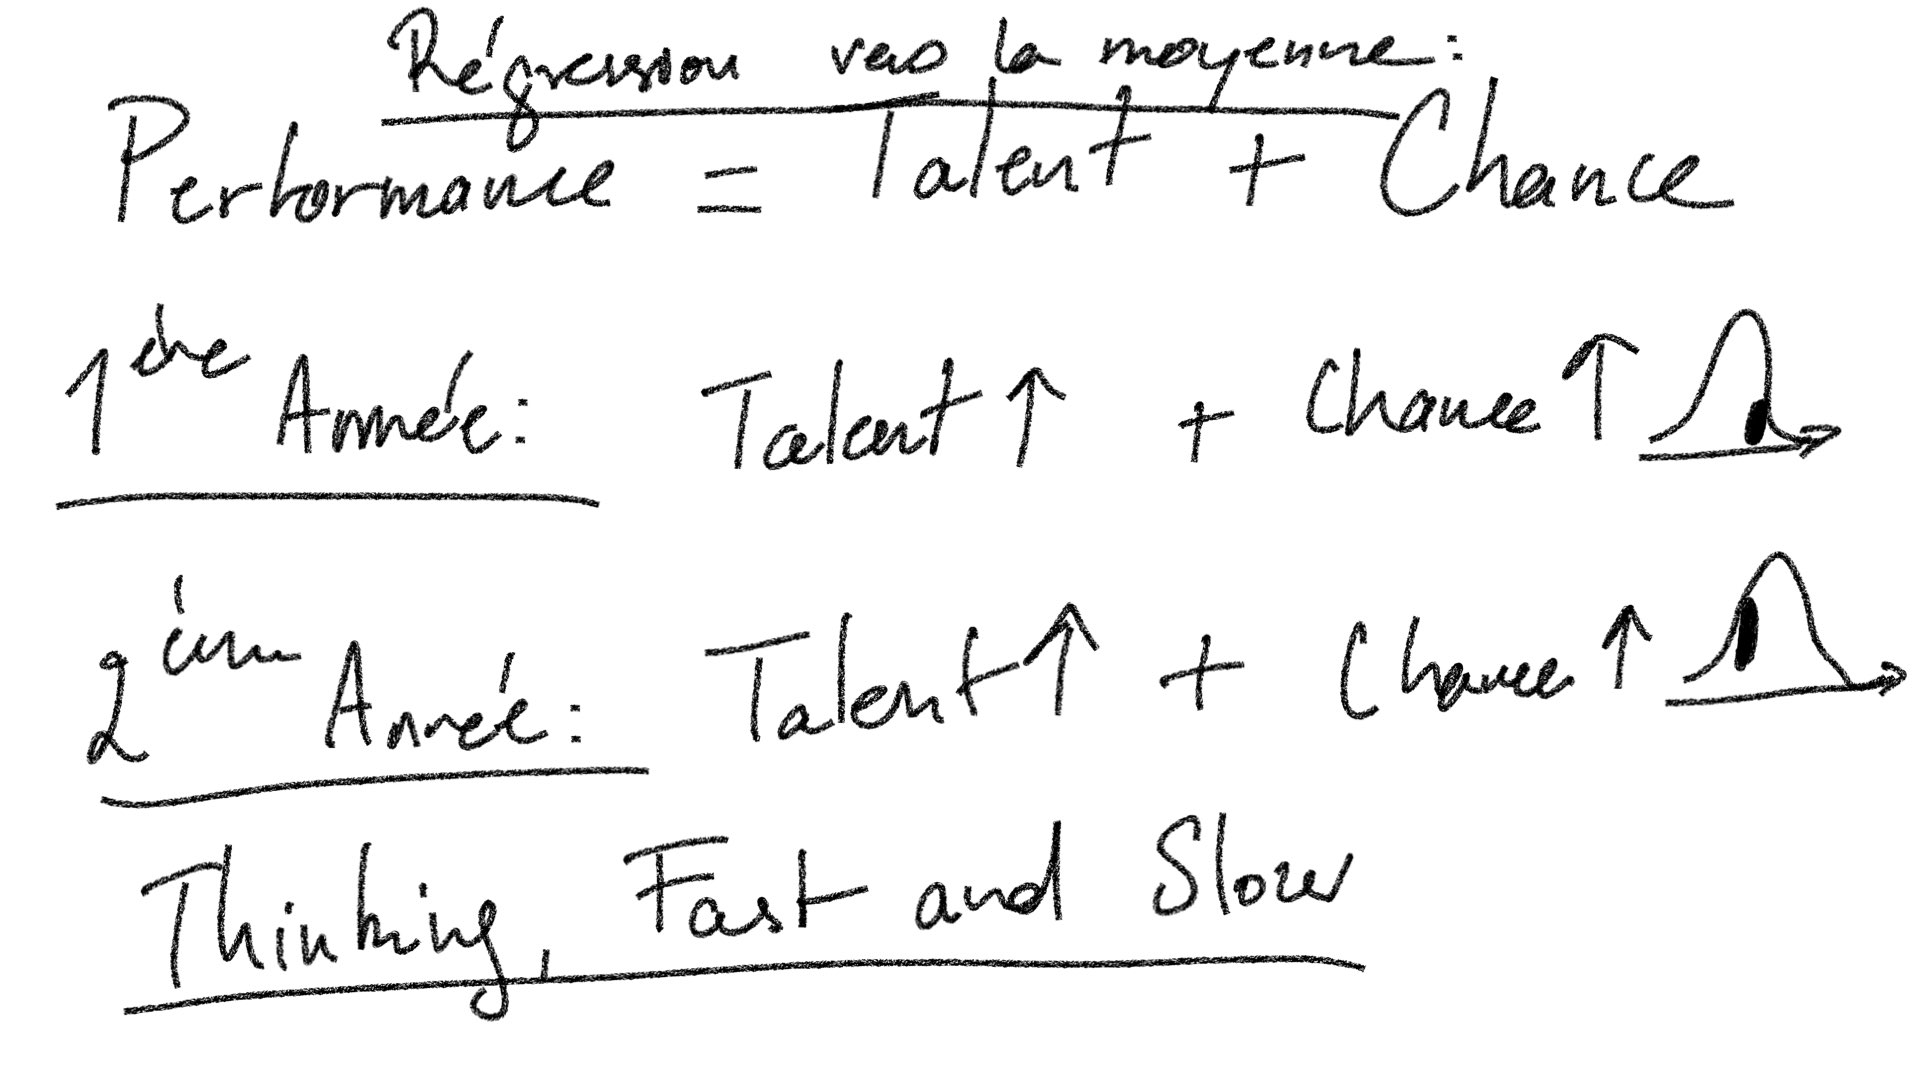 Régression vers la moyenne:
Performance = Talent + Chance
1ère Année: Talent ↑ + Chance ↑
2ème Année: Talent ↑ + Chance ↑
Thinking, Fast and Slow